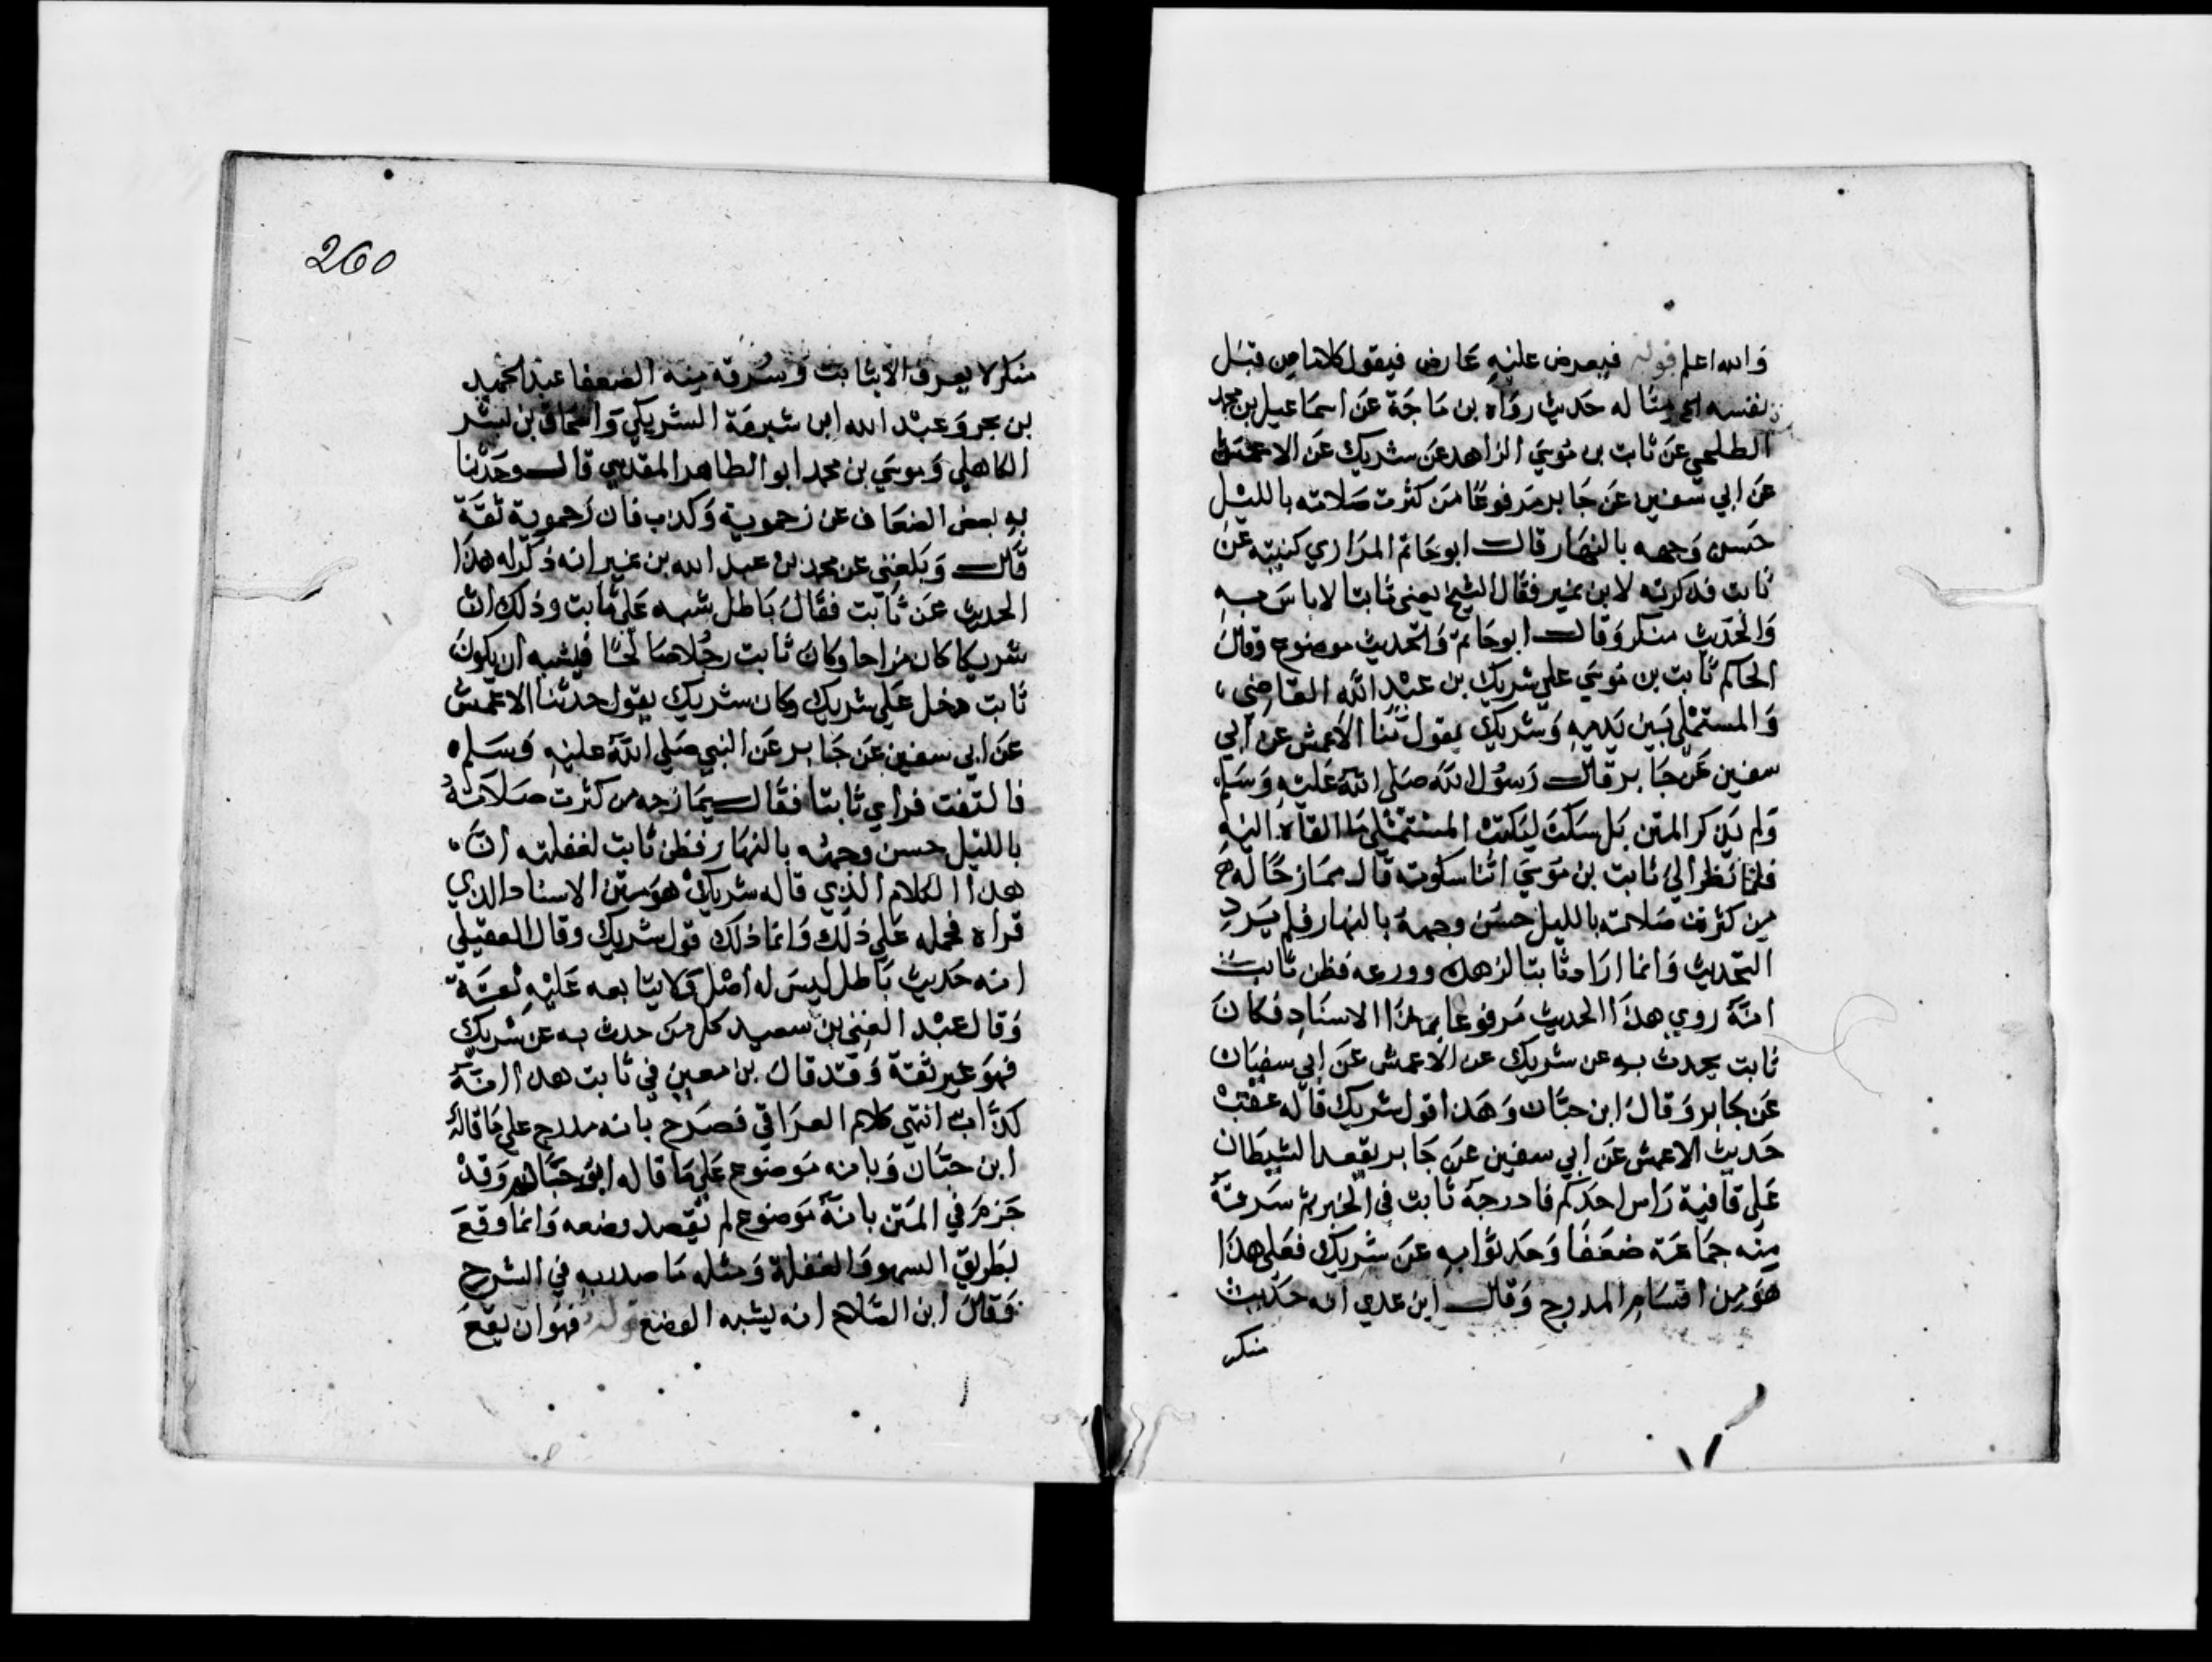 والله اعلم قوله فيعرض عليه عارض فيقول كلاما من قبل
نفسه الخ مثاله حديث رواه بن ماجة عن اسماعيل بن محمد
الطلحي عن ثابت بن موسي الزاهد عن شريك عن الاعمش
عن ابي سفين عن جابر مرفوعا من كثرت صلاته بالليل
حسن وجهه بالنهار قال ابو حاتم الرازي كتبته عن
ثابت فذكرته لابن نمير فقال الشيخ يعني ثابتا لا باس به
والحديث منكر وقال ابو حاتم والحديث موضوع وقال
الحاكم ثابت بن موسي علي شريك بن عبد الله القاضي
والمستملي بين يديه وشريك يقول ثنا الاعمش عن ابي
سفين عن جابر قال رسول الله صلي الله عليه وسلم
ولم يذكر المتن بل سكت ليكتب المستملي ما القاه اليه
فلما نظر الي ثابت بن موسي اثنا سكوته قال ممازحا له
من كثرت صلاته بالليل حسن وجهه بالنهار فلم يرد
التحديث وانما اراد ثابتا لزهده وورعه فظن ثابت
انه روي هذا الحديث مرفوعا بهذا الاسناد فكان
ثابت يحدث به عن شريك عن الاعمش عن ابي سفيان
عن جابر وقال ابن حبان وهذا قول شريك قاله عقب
حديث الاعمش عن ابي سفين عن جابر يقعد الشيطان
علي قافية راس احدكم فادرجه ثابت في الخبر ثم سرقة
منه جماعة ضعفا وحدثوا به عن شريك فعلي هذا
هو من اقسام المدرج وقال ابن عدي انه حديث
منكر
260
منكر لا يعرف الا بثابت وسرقه منه الضعفا عبد الحميد
بن بحر وعبد الله ابن شبرمة الشريكي واسحاق بن بشر
الكاهلي وموسي بن محمد ابو الطاهر المقدسي قال وحدثنا
به بعض الضعاف عن زحموية وكذب فان زحموية ثقة
قال وبلغني عن محمد بن عبد الله بن نمير انه ذكر له هذا
الحديث عن ثابت فقال باطل شبه علي ثابت وذلك ان
شريكا كان مزاحا وكان ثابت رجلا صالحا فيشبه ان يكون
ثابت دخل علي شريك وكان شريك يقول حدثنا الاعمش
عن ابي سفين عن جابر عن النبي صلي الله عليه وسلم
فالتفت فراي ثابتا فقال يمازحه من كثرت صلاته
بالليل حسن وجهه بالنهار فظن ثابت لغفلته ان
هذا الكلام الذي قاله شريك هو متن الاسناد الذي
قراه فحمله علي ذلك وانما ذلك قول شريك وقال العقيلي
انه حديث باطل ليس له اصل ولا يتابعه عليه ثقة
وقال عبد الغني بن سعيد كل من حدث به عن شريك
فهو غير ثقة وقد قال بن معين في ثابت هذا انه
كذاب انتهي كلام العراقي فصرح بانه مدرج علي ما قاله
ابن حبان وبانه موضوع علي ما قاله ابو حاتم وقد
جزم في المتن بانه موضوع لم يقصد وضعه وانما وقع
بطريق السهو والغفلة ومثله ما صدر به في الشرح
وقال ابن الصلاح انه يشبه الوضع قوله فهو ان يقع